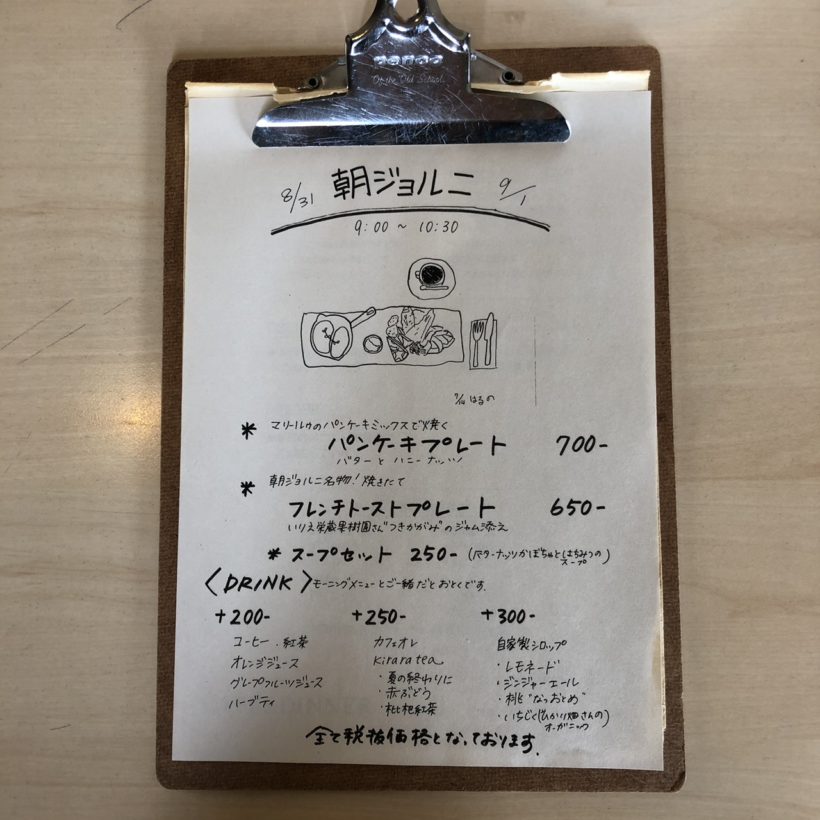 Of the Old School
8/31 朝ジョルニ 9/1
9:00 ~ 10:30
はるの
* マリールゥのパンケーキミックスで焼く
パンケーキプレート 700-
バターとハニーナッツ
* 朝ジョルニ名物!焼きたて
フレンチトーストプレート 650-
いりえ栄蔵果樹園さん"つきかがみ"のジャム添え
* スープセット 250- (バターナッツかぼちゃとはちみつのスープ)
〈DRINK〉モーニングメニューとご一緒だとおとくです。
+200-
コーヒー・紅茶
オレンジジュース
グレープフルーツジュース
ハーブティ
+250-
カフェオレ
kirara tea
・夏の終わりに
・赤ぶどう
・枇杷紅茶
+300-
自家製シロップ
・レモネード
・ジンジャーエール
・桃"なつおとめ"
・いちじく(ひかり畑さんの
オーガニック)
全て税抜価格となっております。